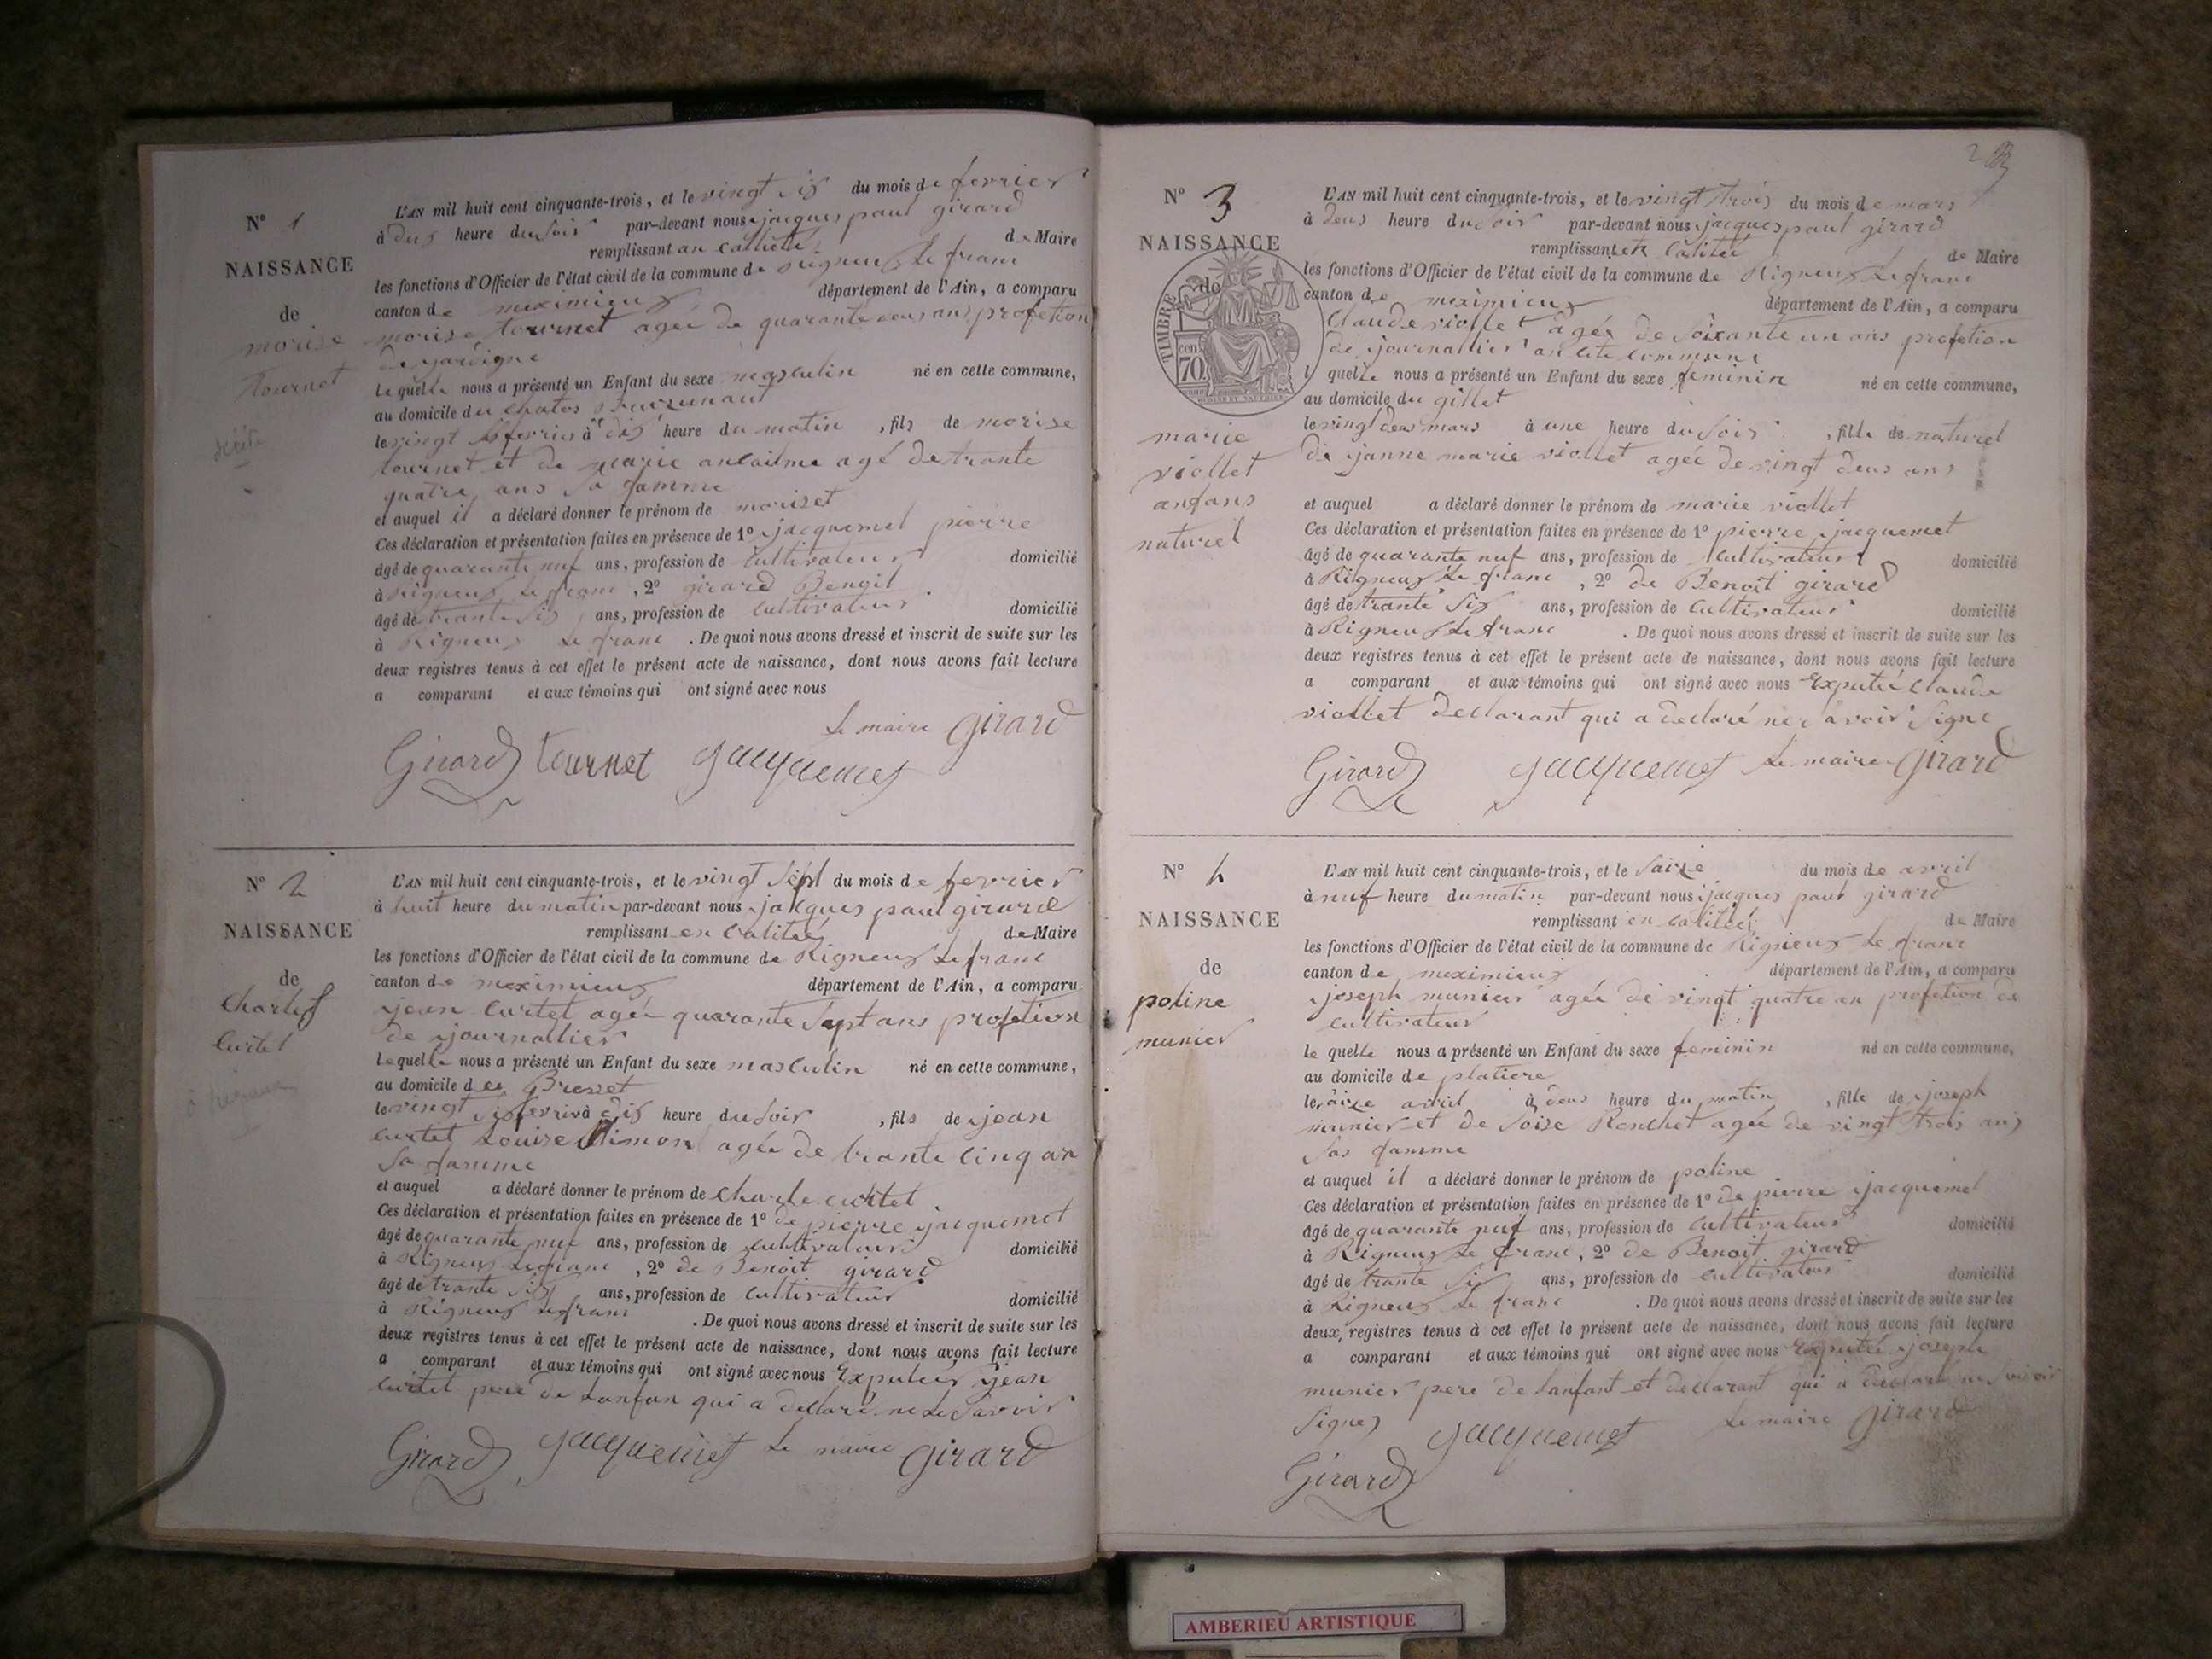 N° 1
NAISSANCE
de
morise
tournet
L'AN mil huit cent cinquante-trois, et le vingt six du mois de ferrier
à deus heure du soir par-devant nous jacques paul girard
remplissant an de Maire
les fonctions d'Officier de l'état civil de la commune de Rigneux Le franc
canton de meximieux département de l'Ain, a comparu
morise tournet agée de quarante deus ans profetion
de
le quelle nous a présenté un Enfant du sexe masculin né en cette commune,
au domicile du
le vingt six ferrier à dis heure du matin , fils de morise
tournet et de marie agé de trante
quatre ans sa famme
et auquel il a déclaré donner le prénom de moriset
Ces déclaration et présentation faites en présence de 1° jacquemet pierre
âgé de quarante nuf ans, profession de cultivateur domicilié
à Rigneux Le franc , 2° girard Benoit
âgé de trante six ans, profession de cultivateur domicilié
à Rigneux Le franc . De quoi nous avons dressé et inscrit de suite sur les
deux registres tenus à cet effet le présent acte de naissance, dont nous avons fait lecture
a comparant et aux témoins qui ont signé avec nous
Le maire Girard
Girard tournet Jacquemet
N° 2
NAISSANCE
de
Charles
Curtet
L'AN mil huit cent cinquante-trois, et le vingt sept du mois de fevrier
à huit heure du matin par-devant nous jacques paul girard
remplissant en calitée de Maire
les fonctions d'Officier de l'état civil de la commune de Rigneux Le franc
canton de meximieux département de l'Ain, a comparu
jean Curtet agée quarante sept ans profetion
de journallier
le quelle nous a présenté un Enfant du sexe masculin né en cette commune,
au domicile des Bresset
le vingt six ferrier à dix heure du soir , fils de jean
curtet Louise Simon agée de trante cinq an
sa famme
et auquel a déclaré donner le prénom de Charle curtet
Ces déclaration et présentation faites en présence de 1° de pierre jacquemet
âgé de quarante nuf ans, profession de cultivateur domicilié
à Rigneux Le franc , 2° de Benoit girard
âgé de trante six ans, profession de cultivateur domicilié
à Rigneux Le franc . De quoi nous avons dressé et inscrit de suite sur les
deux registres tenus à cet effet le présent acte de naissance, dont nous avons fait lecture
a comparant et aux témoins qui ont signé avec nous Exputée jean
curtet pere de Lanfan qui a declaré ne Le savoir
Girard Jacquemet Le maire Girard
2
N° 3
NAISSANCE
de
TIMBRE
70
cen
marie
viollet
anfans
naturel
L'AN mil huit cent cinquante-trois, et le vingt trois du mois de mars
à deus heure du soir par-devant nous jacques paul girard
remplissant en calitée de Maire
les fonctions d'Officier de l'état civil de la commune de Rigneux Le franc
canton de meximieux département de l'Ain, a comparu
Claude viollet agée de soixante un ans profetion
de journallier an cite commune
l quelle nous a présenté un Enfant du sexe feminin né en cette commune,
au domicile du gillet
le vingt deus mars à une heure du soir , fille de naturel
de janne marie viollet agée de vingt deus ans
et auquel a déclaré donner le prénom de marie viollet
Ces déclaration et présentation faites en présence de 1° pierre jacquemet
âgé de quarante nuf ans, profession de cultivateur domicilié
à Rigneux Le franc , 2° de Benoit girard
âgé de trante six ans, profession de cultivateur domicilié
à Rigneux Le franc . De quoi nous avons dressé et inscrit de suite sur les
deux registres tenus à cet effet le présent acte de naissance, dont nous avons fait lecture
a comparant et aux témoins qui ont signé avec nous Exputée Claude
viollet declarant qui a declaré ne savoir signe
Girard Jacquemet Le maire Girard
N° 4
NAISSANCE
de
poline
munier
L'AN mil huit cent cinquante-trois, et le saize du mois de avril
à nuf heure du matin par-devant nous jacques paul girard
remplissant en calitée de Maire
les fonctions d'Officier de l'état civil de la commune de Rignieux Le franc
canton de meximieux département de l'Ain, a comparu
joseph munier agée de vingt quatre an profetion de
cultivateur
le quelle nous a présenté un Enfant du sexe feminin né en cette commune,
au domicile de platiere
le saize avril à deus heure du matin , fille de joseph
munier et de Ronchet agée de vingt trois ans
sas famme
et auquel il a déclaré donner le prénom de poline
Ces déclaration et présentation faites en présence de 1° de pierre jacquemet
âgé de quarante nuf ans, profession de cultivateur domicilié
à Rigneux Le franc , 2° de Benoit girard
âgé de trante six ans, profession de cultivateur domicilié
à Rigneux Le franc . De quoi nous avons dressé et inscrit de suite sur les
deux registres tenus à cet effet le présent acte de naissance, dont nous avons fait lecture
a comparant et aux témoins qui ont signé avec nous Exputée joseph
munier pere de lanfant et declarant qui a declaré ne savoir
signer
Jacquemet Le maire Girard
Girard
AMBERIEU ARTISTIQUE